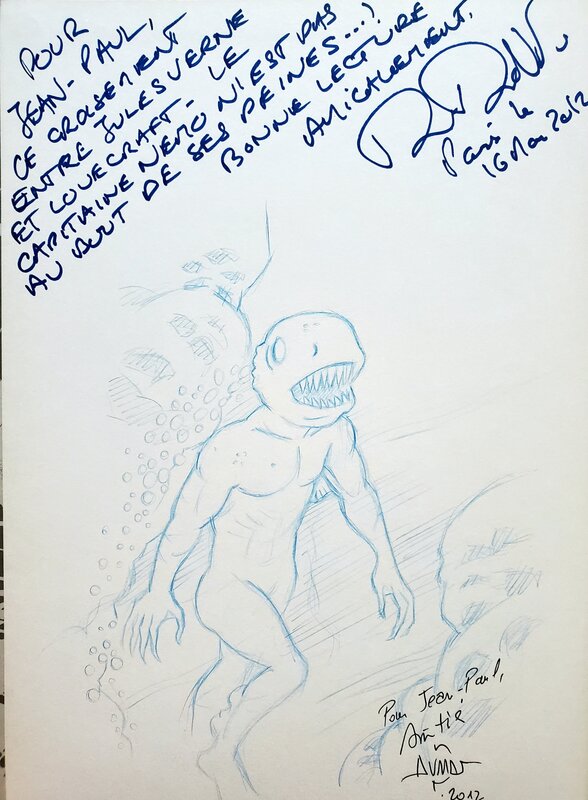 POUR
JEAN-PAUL,
CE CROISEMENT
ENTRE JULES VERNE
ET LOVECRAFT - LE
CAPITAINE NEMO N'EST PAS
AU BOUT DE SES PEINES...!
BONNE LECTURE
AMICALEMENT.
Paris le
16 Mai 2012
Pour Jean-Paul,
Amitié
2012